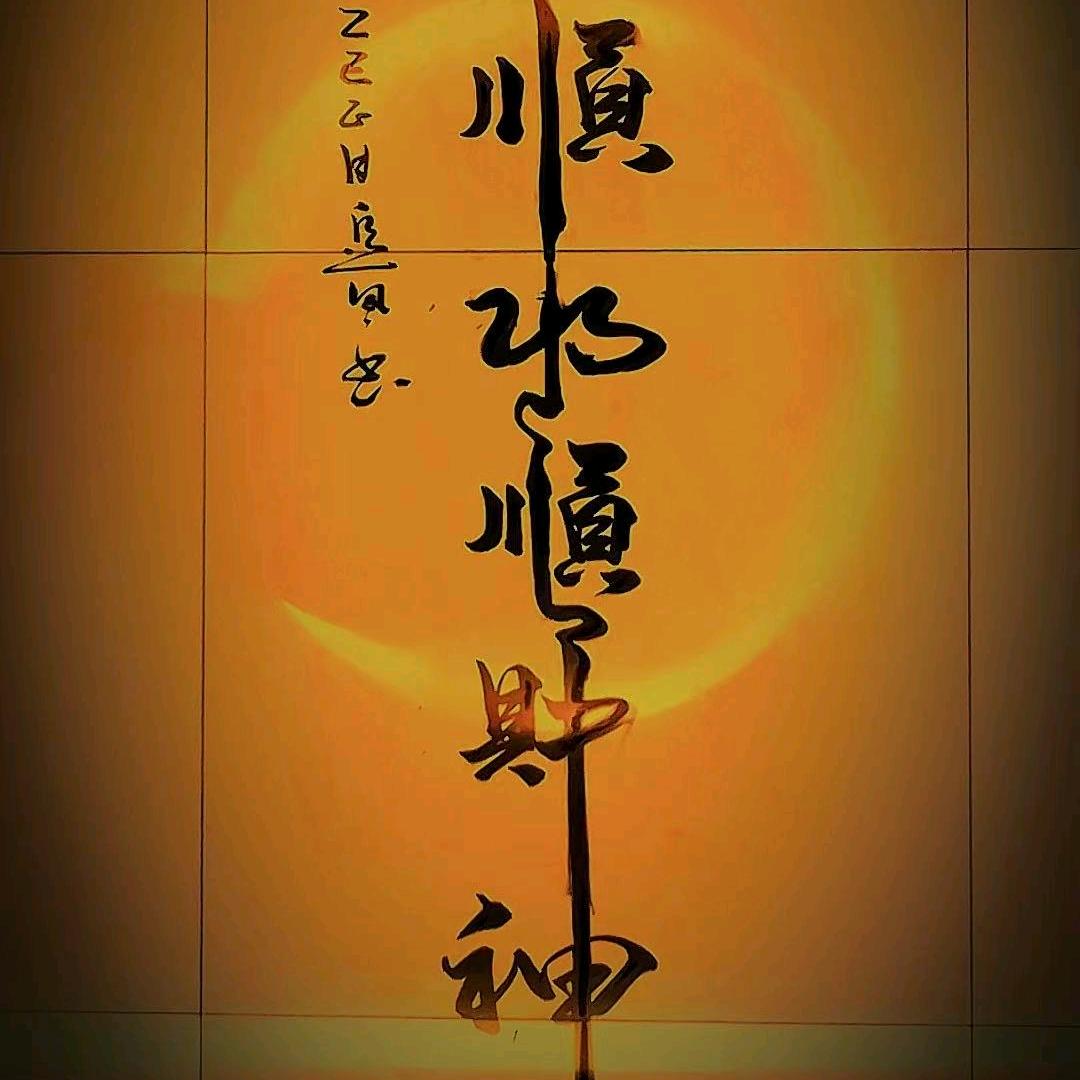 順水順財神
乙巳正月
書